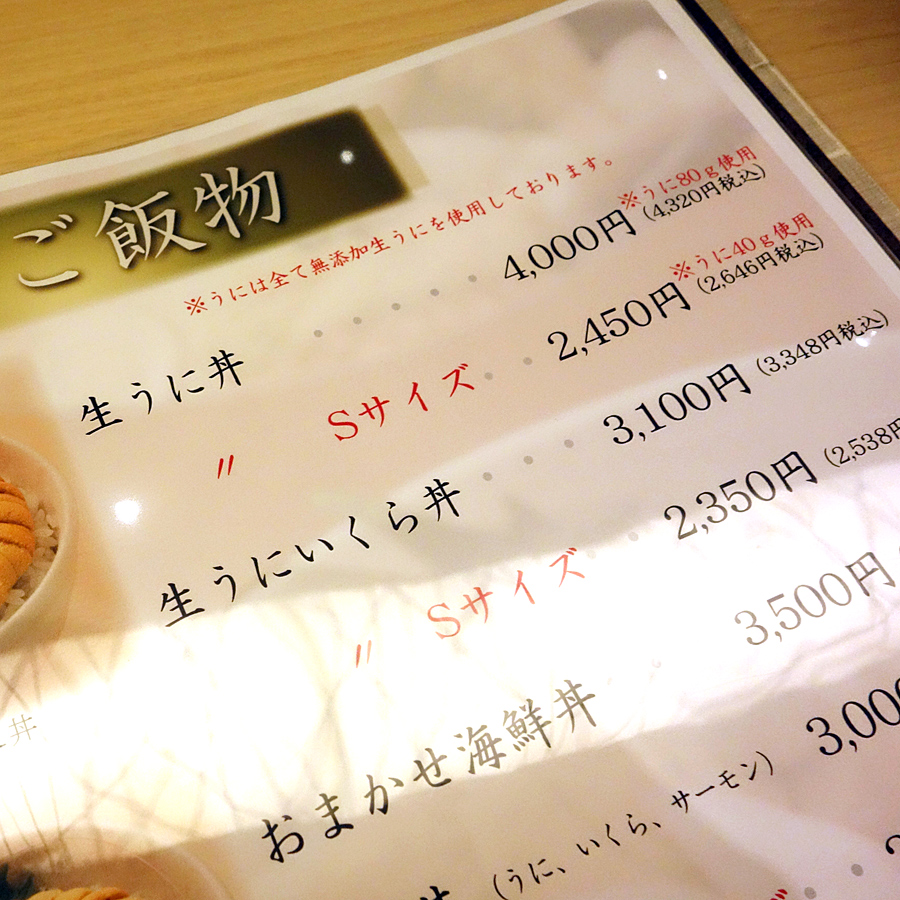 ご飯物
※うには全て無添加生うにを使用しております。
※うに80g使用
生うに丼 ・・・・・ 4,000円 (4,320円税込)
※うに40g使用
〃 Sサイズ・・ 2,450円 (2,646円税込)
生うにいくら丼 ・・・ 3,100円 (3,348円税込)
〃 Sサイズ・・ 2,350円 (2,538円
おまかせ海鮮丼 3,500円
3,00
(うに、いくら、サーモン)
丼